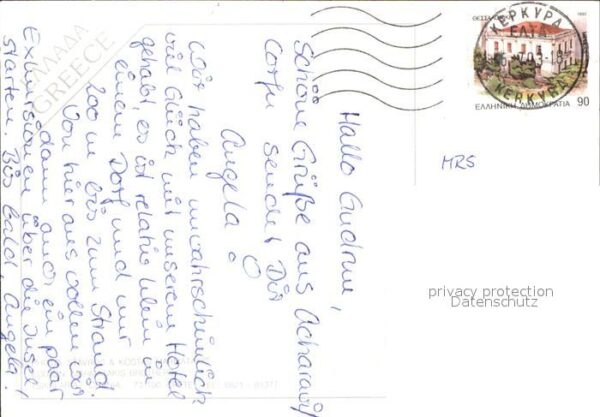 Hallo Gudrun,
Schöne Grüße aus Acharavi/
Corfu sendet Dir
Angela!
Wir haben wahrscheinlich
viel Glück mit unserem Hotel
gehabt, es ist relativ klein in
einem Dorf und nur
200 m bis zum Strand.
Von hier aus wollen wir
dann auch ein paar
Exkursionen über die Insel
starten. Bis bald, Angela!
ΕΛΛΑΔΑ
GREECE
ΚΕΡΚΥΡΑ
ΕΛΤΑ
ΚΕΡΚΥΡΑ
ΕΛΛΗΝΙΚΗ ΔΗΜΟΚΡΑΤΙΑ 90
MRS
privacy protection
Datenschutz